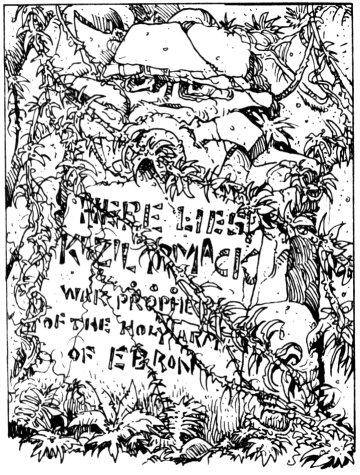 HERE LIES
KIZIL
WAR PROPHE
OF THE HOLY ARM
OF EBRON